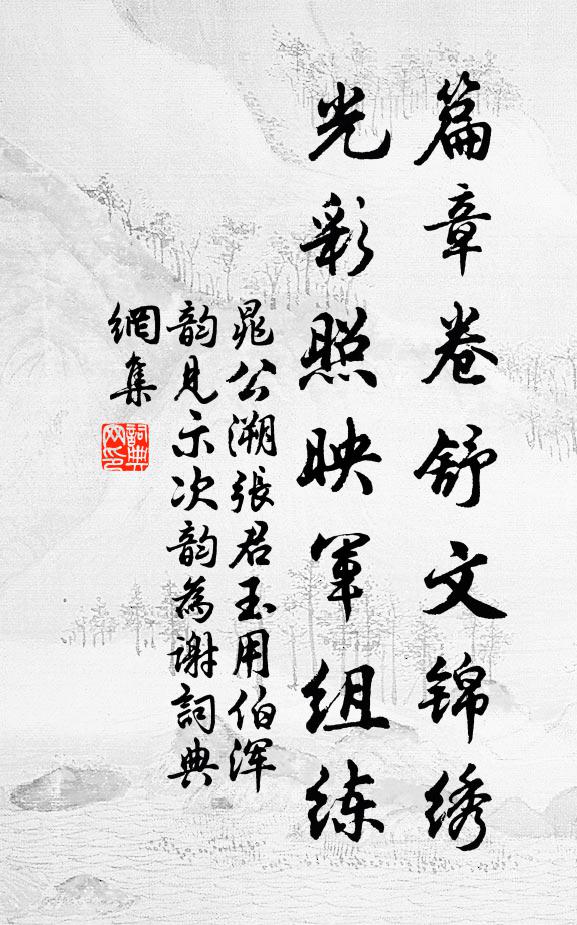 篇章卷舒文锦绣
光彩照映军组练
晁公溯張君玉用伯浑
韵見示次韵為谢詞典
網集
詞典网印